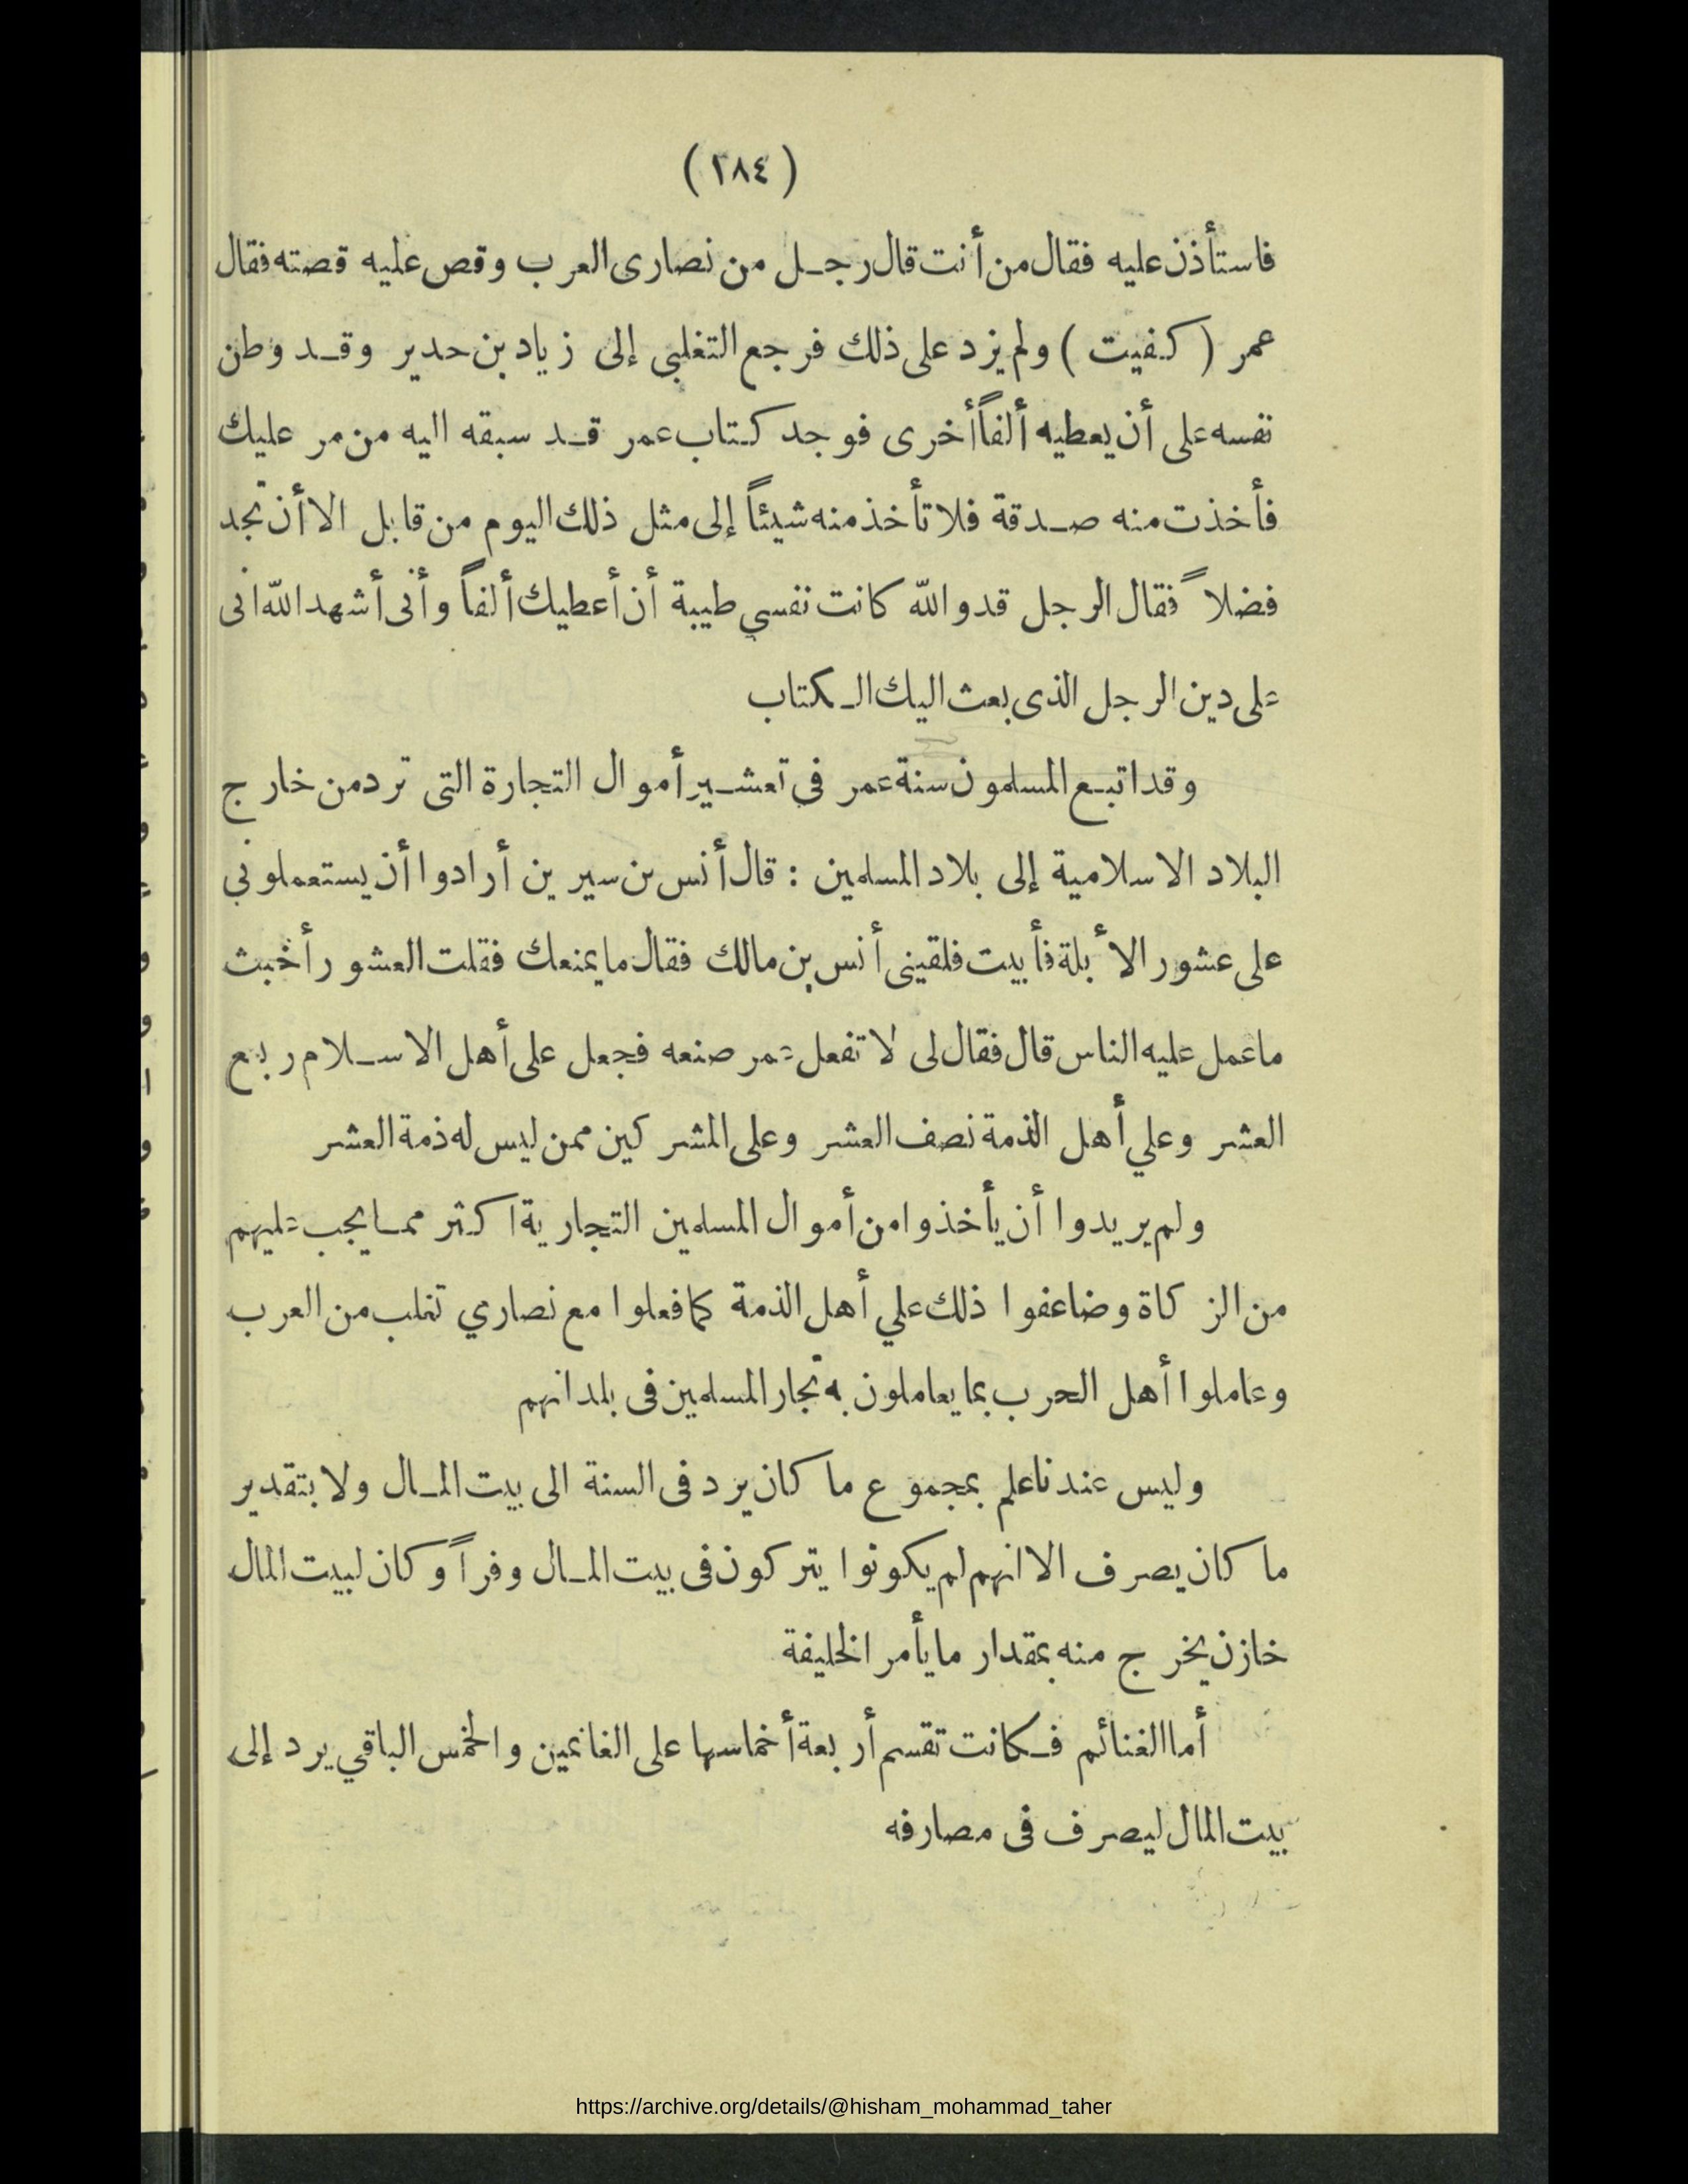 (٢٨٤)
فاستأذن عليه فقال من أنت قال رجل من نصارى العرب وقص عليه قصته فقال
عمر (كفيت) ولم يزد على ذلك فرجع التغلبي إلى زياد بن حدير وقد وطن
نفسه على أن يعطيه ألفاً أخرى فوجد كتاب عمر قد سبقه اليه من مر عليك
فأخذت منه صدقة فلا تأخذ منه شيئاً إلى مثل ذلك اليوم من قابل الا أن تجد
فضلاً فقال الرجل قد والله كانت نفسي طيبة أن أعطيك ألفاً وأنى أشهد الله انى
على دين الرجل الذى بعث اليك الكتاب
وقد اتبع المسلمون سنة عمر في تعشير أموال التجارة التى ترد من خارج
البلاد الاسلامية إلى بلاد المسلمين : قال أنس بن سيرين أرادوا أن يستعملونى
على عشور الأبلة فأبيت فلقينى أنس بن مالك فقال ما يمنعك فقلت العشور أخبث
ما عمل عليه الناس قال فقال لى لا تفعل عمر صنعه فجعل على أهل الاسلام ربع
العشر وعلي أهل الذمة نصف العشر وعلى المشركين ممن ليس له ذمة العشر
ولم يريدوا أن يأخذوا من أموال المسلمين التجارية اكثر مما يجب عليهم
من الزكاة وضاعفوا ذلك علي أهل الذمة كما فعلوا مع نصاري تغلب من العرب
وعاملوا أهل الحرب بما يعاملون به تجار المسلمين فى بلدانهم
وليس عندنا علم بمجموع ما كان يرد فى السنة الى بيت المال ولا بتقدير
ما كان يصرف الا انهم لم يكونوا يتركون فى بيت المال وفراً وكان لبيت المال
خازن يخرج منه بمقدار ما يأمر الخليفة
أما الغنائم فكانت تقسم أربعة أخماسها على الغانمين والخمس الباقي يرد إلى
بيت المال ليصرف فى مصارفه
https://archive.org/details/@hisham_mohammad_taher